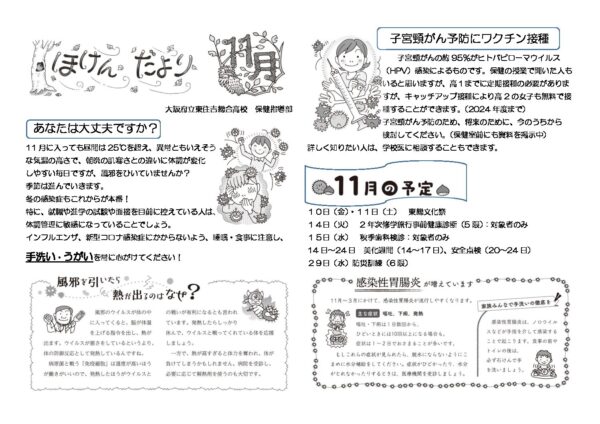 ほけんだより 11月
大阪府立東住吉総合高校 保健指導部
あなたは大丈夫ですか？
11月に入っても昼間は25℃を超え、異常ともいえそう
な気温の高さで、朝晩の肌寒さとの違いに体調が変化
しやすい毎日ですが、風邪をひいていませんか？
季節は進んでいきます。
冬の感染症もこれからが本番！
特に、就職や進学の試験や面接を目前に控えている人は、
体調管理に敏感になっていることでしょう。
インフルエンザ、新型コロナ感染症にかからないよう、睡眠・食事に注意し、
手洗い・うがいを常に心がけてください！
風邪を引いたら
熱が出るのはなぜ？
風邪のウイルスが体の中
に入ってくると、脳が体温
を上げる指令を出し、熱が
出ます。ウイルスが暴れているというより、
体の防御反応として発熱しているんですね。
病原菌と戦う「免疫細胞」は温度が高いほう
が働きがいいので、発熱したほうがウイルスと
の戦いが有利になるとも言わ
れています。発熱したらしっかり
休んで、ウイルスと戦ってくれている体を応援
しましょう。
一方で、熱が高すぎると体力を奪われ、体が
負けてしまうかもしれません。病院を受診し、
必要に応じて解熱剤を使うのも大切です。
子宮頸がん予防にワクチン接種
子宮頸がんの約95％がヒトパピローマウイルス
（HPV）感染によるものです。保健の授業で聞いた人も
いると思いますが、高1までに定期接種の必要がありま
すが、キャッチアップ接種により高2の女子も無料で接
種することができます。（2024年度まで）
子宮頸がん予防のため、将来のために、今のうちから
検討してください。（保健室前にも資料を掲示中）
詳しく知りたい人は、学校医に相談することもできます。
11月の予定
10日（金）・11日（土） 東龍文化祭
14日（火） 2年次修学旅行事前健康診断（5限）：対象者のみ
15日（水） 秋季歯科検診：対象者のみ
14日～24日 美化週間（14～17日）、安全点検（20～24日）
29日（水）防災訓練（6限）
感染性胃腸炎が増えています
11月～3月にかけて、感染性胃腸炎が流行しやすくなります。
主な症状 嘔吐、下痢、発熱
嘔吐・下痢は1日数回から、
ひどいときには10回以上になる場合も。
症状は1～2日でおさまることが多いです。
もしこれらの症状が見られたら、脱水にならないようにこ
まめに水分補給をしてください。症状がひどかったり、水分
がとれなかったりするときは、医療機関を受診しましょう。
家族みんなで手洗いの徹底を
感染性胃腸炎は、ノロウイル
スなどが手指を介して感染する
ことで起こります。食事の前や
トイレの後は、
必ず石けんで手
を洗いましょう。